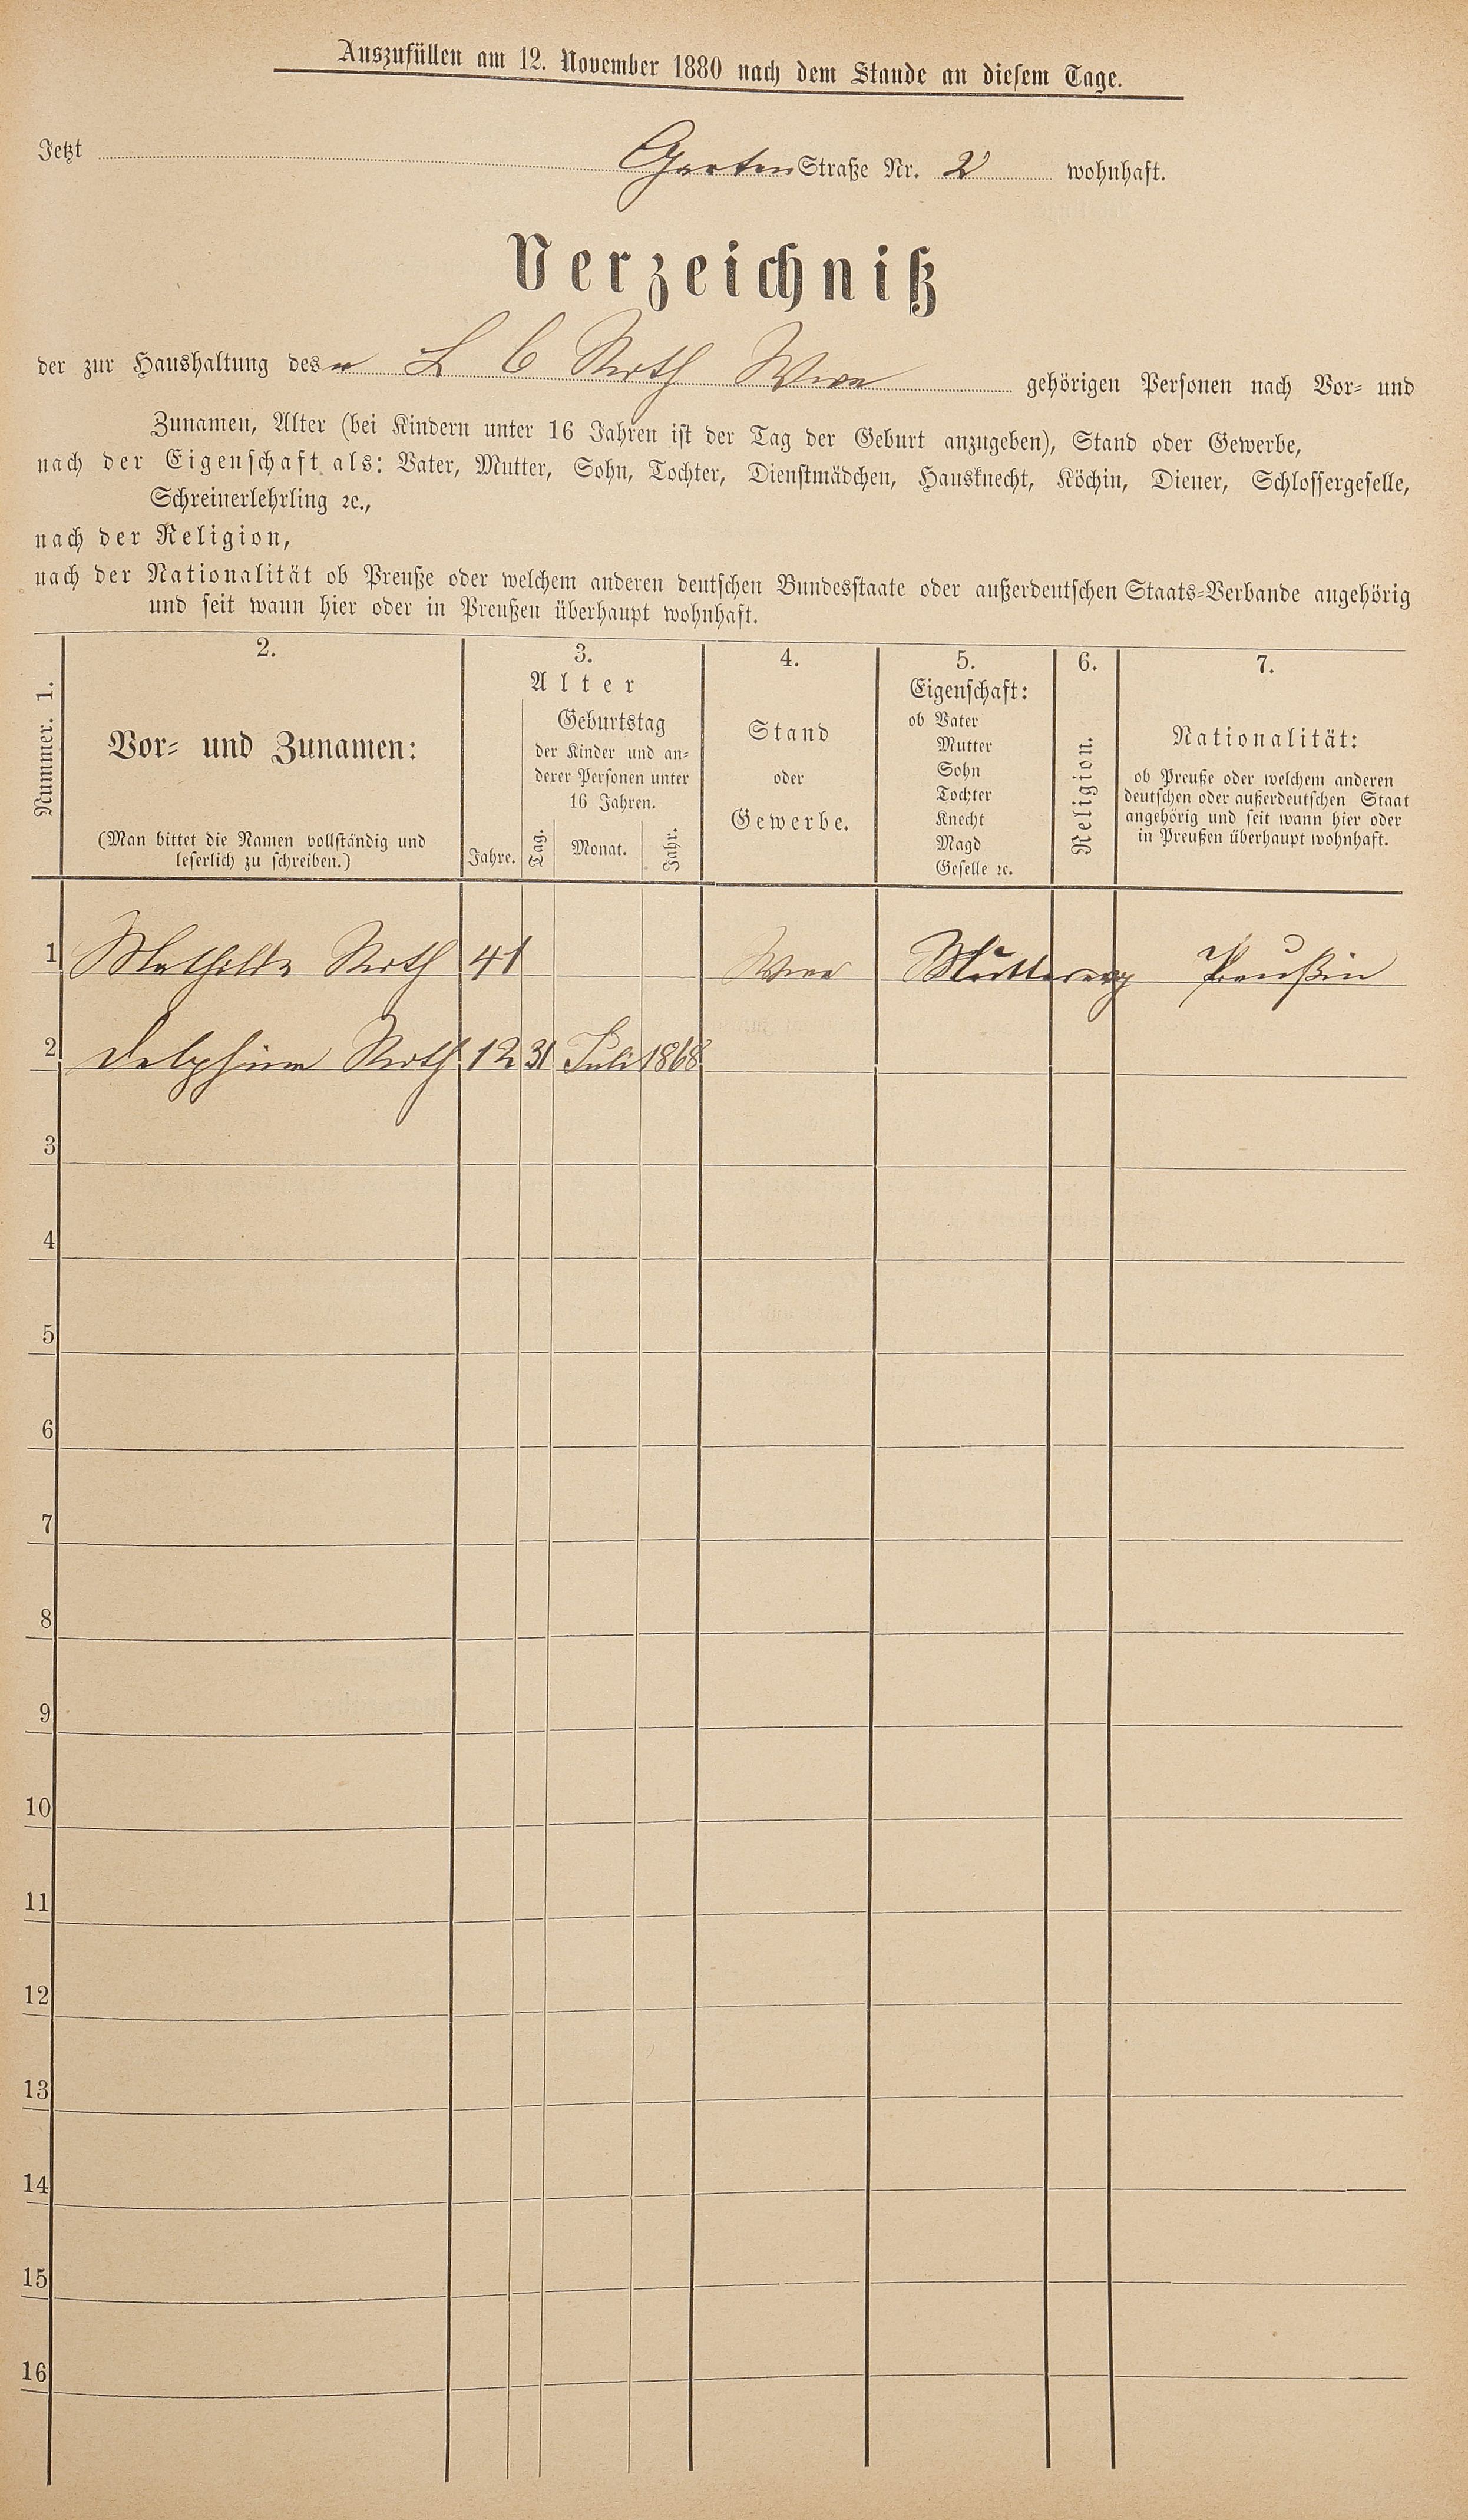 Auszufüllen am 12. November 1880 nach dem Stande an diesem Tage.
Jetzt Garten Straße Nr. 2 wohnhaft.
Verzeichniß
der zur Haushaltung des L C Roth Wwe gehörigen Personen nach Vor- und
Zunamen, Alter (bei Kindern unter 16 Jahren ist der Tag der Geburt anzugeben), Stand oder Gewerbe,
nach der Eigenschaft als: Vater, Mutter, Sohn, Tochter, Dienstmädchen, Hausknecht, Köchin, Diener, Schlossergeselle,
Schreinerlehrling ꝛc.,
nach der Religion,
nach der Nationalität ob Preuße oder welchem anderen deutschen Bundesstaate oder außerdeutschen Staats-Verbande angehörig
und seit wann hier oder in Preußen überhaupt wohnhaft.
Nummer. 1.
2.
Vor- und Zunamen:
(Man bittet die Namen vollständig und
leserlich zu schreiben.)
3.
Alter
Jahre.
Geburtstag
der Kinder und an-
derer Personen unter
16 Jahren.
Tag. Monat. Jahr.
4.
Stand
oder
Gewerbe.
5.
Eigenschaft:
ob Vater
Mutter
Sohn
Tochter
Knecht
Magd
Geselle ꝛc.
6.
Religion.
7.
Nationalität:
ob Preuße oder welchem anderen
deutschen oder außerdeutschen Staat
angehörig und seit wann hier oder
in Preußen überhaupt wohnhaft.
1 Mathilde Roth 41 Wwe Mutter ev Preußin
2 Delphine Roth 12 31 Juli 1868
3
4
5
6
7
8
9
10
11
12
13
14
15
16